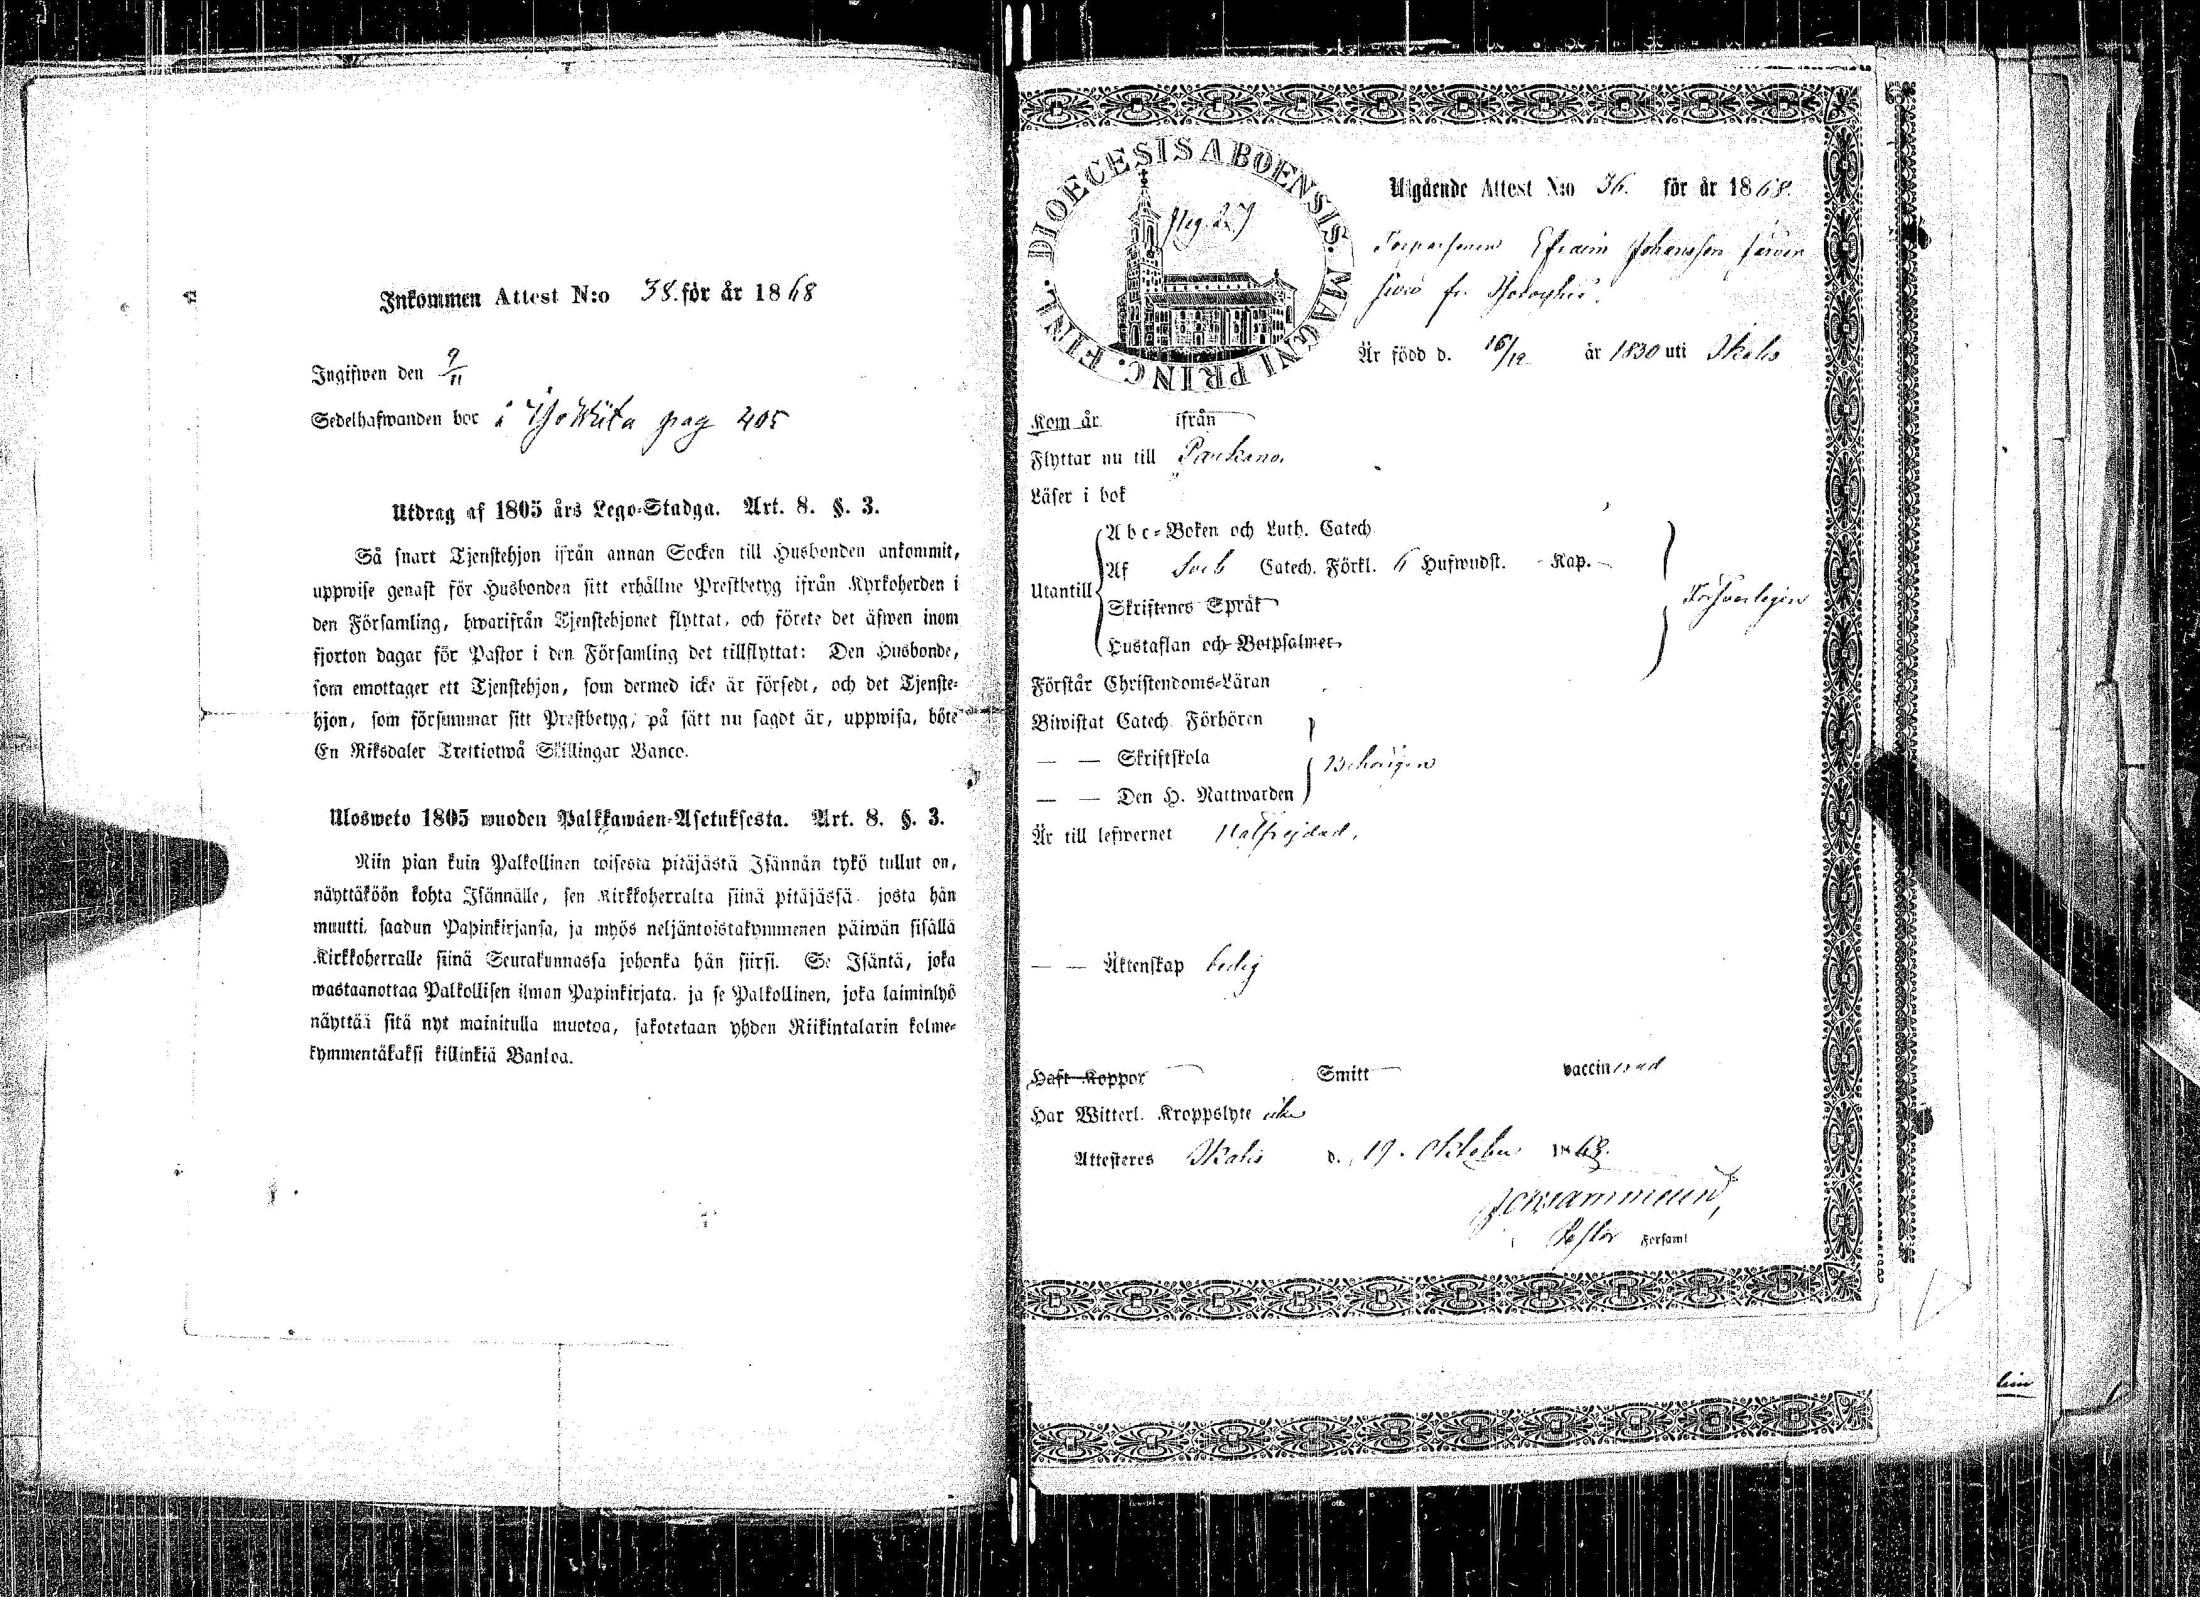 Inkommen Attest N:o 38. för år 1868
Ingifwen den 9/11
Sedelhafwanden bor i pag 405
Utdrag af 1805 års Lego-Stadga. Art. 8. §. 3.
Så snart Tjenstehjon ifrån annan Socken till Husbonden ankommit,
uppwise genast för Husbonden sitt erhållne Prestbetyg ifrån Kyrkoherden i
den Församling, hwarifrån Tjenstehjonet flyttat, och förete det äfwen inom
fjorton dagar för Pastor i den Församling det tillflyttat: Den Husbonde,
som emottager ett Tjenstehjon, som dermed icke är försedt, och det Tjenste-
hjon, som försummar sitt Prestbetyg, på sätt nu sagdt är, uppwisa, böte
En Riksdaler Trettiotwå Skillingar Banco.
Ulosweto 1805 wuoden Palkkawäen-Asetuksesta. Art. 8. §. 3.
Niin pian kuin Palkollinen toisesta pitäjästä Isännän tykö tullut on,
näyttäköön kohta Isännälle, sen Kirkkoherralta siinä pitäjässä josta hän
muutti, saadun Papinkirjansa, ja myös neljäntoistakymmenen päiwän sisällä
Kirkkoherralle siinä Seurakunnassa johonka hän siirsi. Se Isäntä, joka
wastaanottaa Palkollisen ilman Papinkirjata, ja se Palkollinen, joka laiminlyö
näyttää sitä nyt mainitulla muotoa, sakotetaan yhden Riikintalarin kolme-
kymmentäkaksi killinkiä Bankoa.
DIOECESIS ABOENSIS. MAGNI PRINC. FINL.
pag. 27
Utgående Attest N:o 36. för år 1868.
Efraim Johansson
Är född d. 16/12 år 1830 uti Ikalis
Kom år ifrån
Flyttar nu till Parkano.
Läser i bok
Utantill
Abc-Boken och Luth. Catech.
Af Sveb Catech. Förkl. 6 Hufwudst. - Kap. -
Skriftenes Språk
Hustaflan och Botpsalmer
Försvarligen
Förstår Christendoms-Läran
Biwistat Catech. Förhören
— — Skriftskola
— — Den H. Nattwarden
Behörigen
Är till lefwernet Välfrejdad.
— — Äktenskap ledig
Haft Koppor Smitt vaccinerad
Har Witterl. Kroppslyte icke
Attesteres Ikalis d. 19. Oktober 1868.
i Pastor Församl